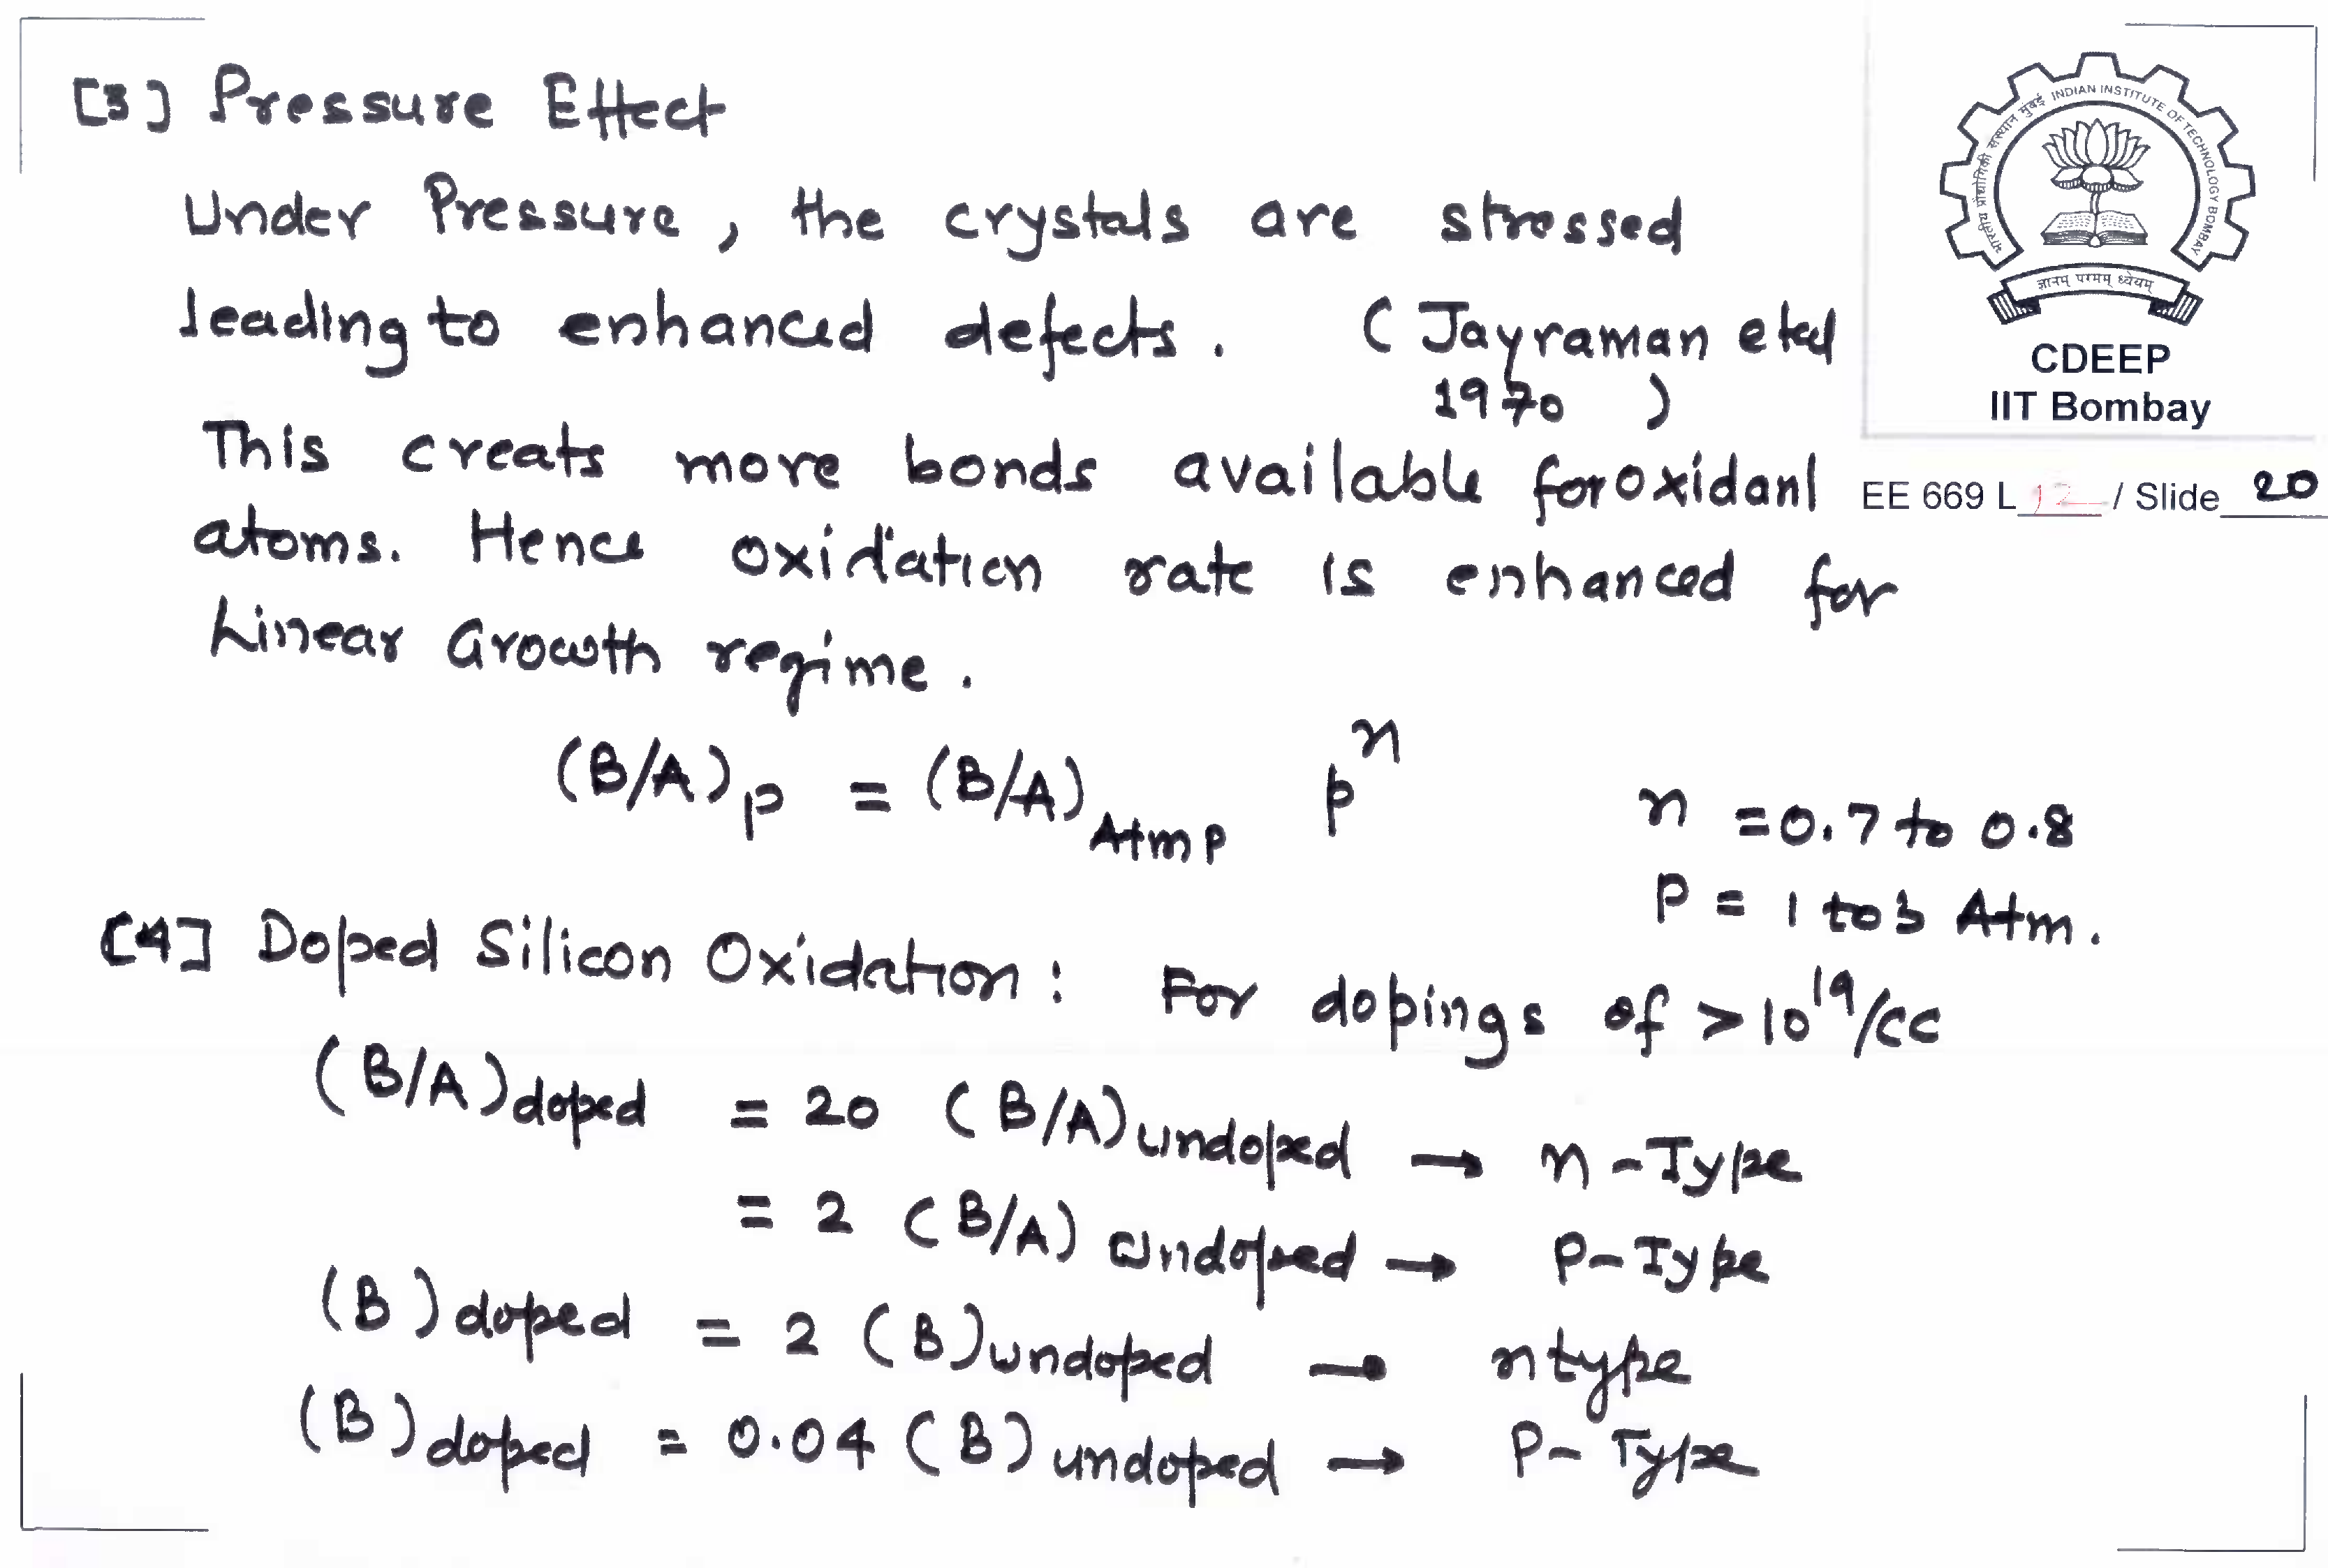 [3] Pressure Effect
Under Pressure, the crystals are stressed
leading to enhanced defects. (Jayraman etal
1970 )
This creats more bonds available for oxidant
atoms. Hence oxidation rate is enhanced for
Linear Growth regime.
(B/A)p = (B/A)Atm P p^n
n = 0.7 to 0.8
P = 1 to 3 Atm.
[4] Doped Silicon Oxidation: For dopings of >10^19/cc
(B/A)doped = 20 (B/A)undoped → n-Type
= 2 (B/A) undoped → P-Type
(B)doped = 2 (B)undoped → n type
(B)doped = 0.04 (B)undoped → P-Type
भारतीय प्रौद्योगिकी संस्थान मुंबई INDIAN INSTITUTE OF TECHNOLOGY BOMBAY
ज्ञानम् परमम् ध्येयम्
CDEEP
IIT Bombay
EE 669 L 12 / Slide 20